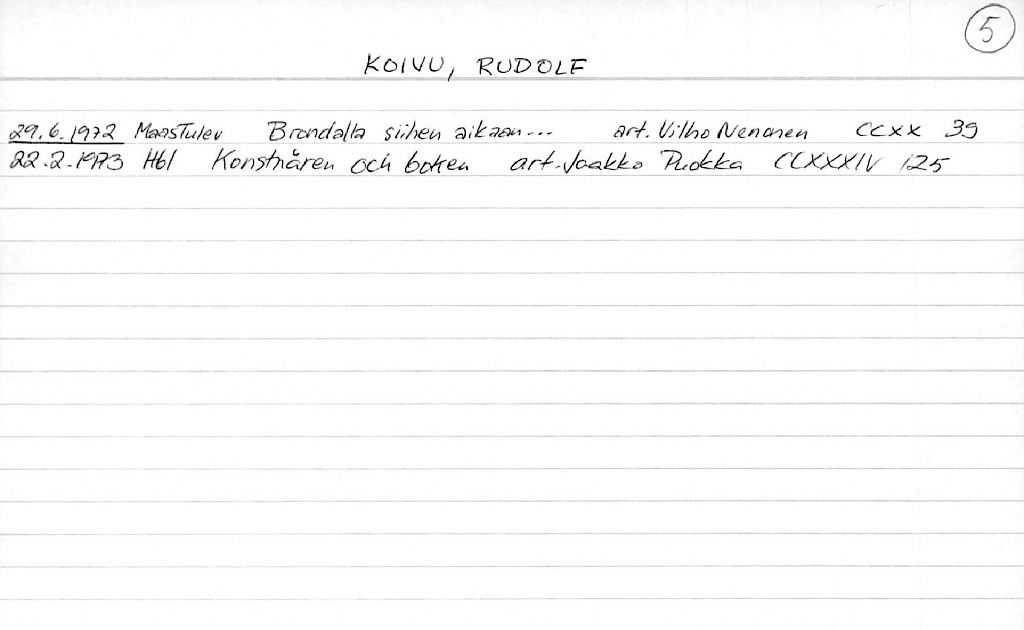 5
KOIVU, RUDOLF
29.6.1972 MaasTulev Brondalla siihen aikaan... art. Vilho Nenonen CCXX 39
22.2.1973 Hbl Konstnären och boken art. Jaakko Puokka CCXXXIV 125